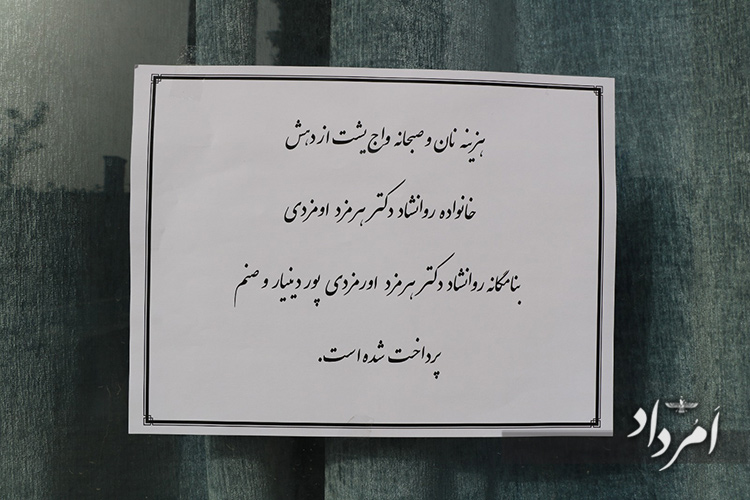 هزینه نان و صبحانه واج یشت از دهش
خانواده روانشاد دکتر هرمزد اومزدی
بنامگانه روانشاد دکتر هرمزد اورمزدی پور دینیار و صنم
پرداخت شده است.
اَمُرداد